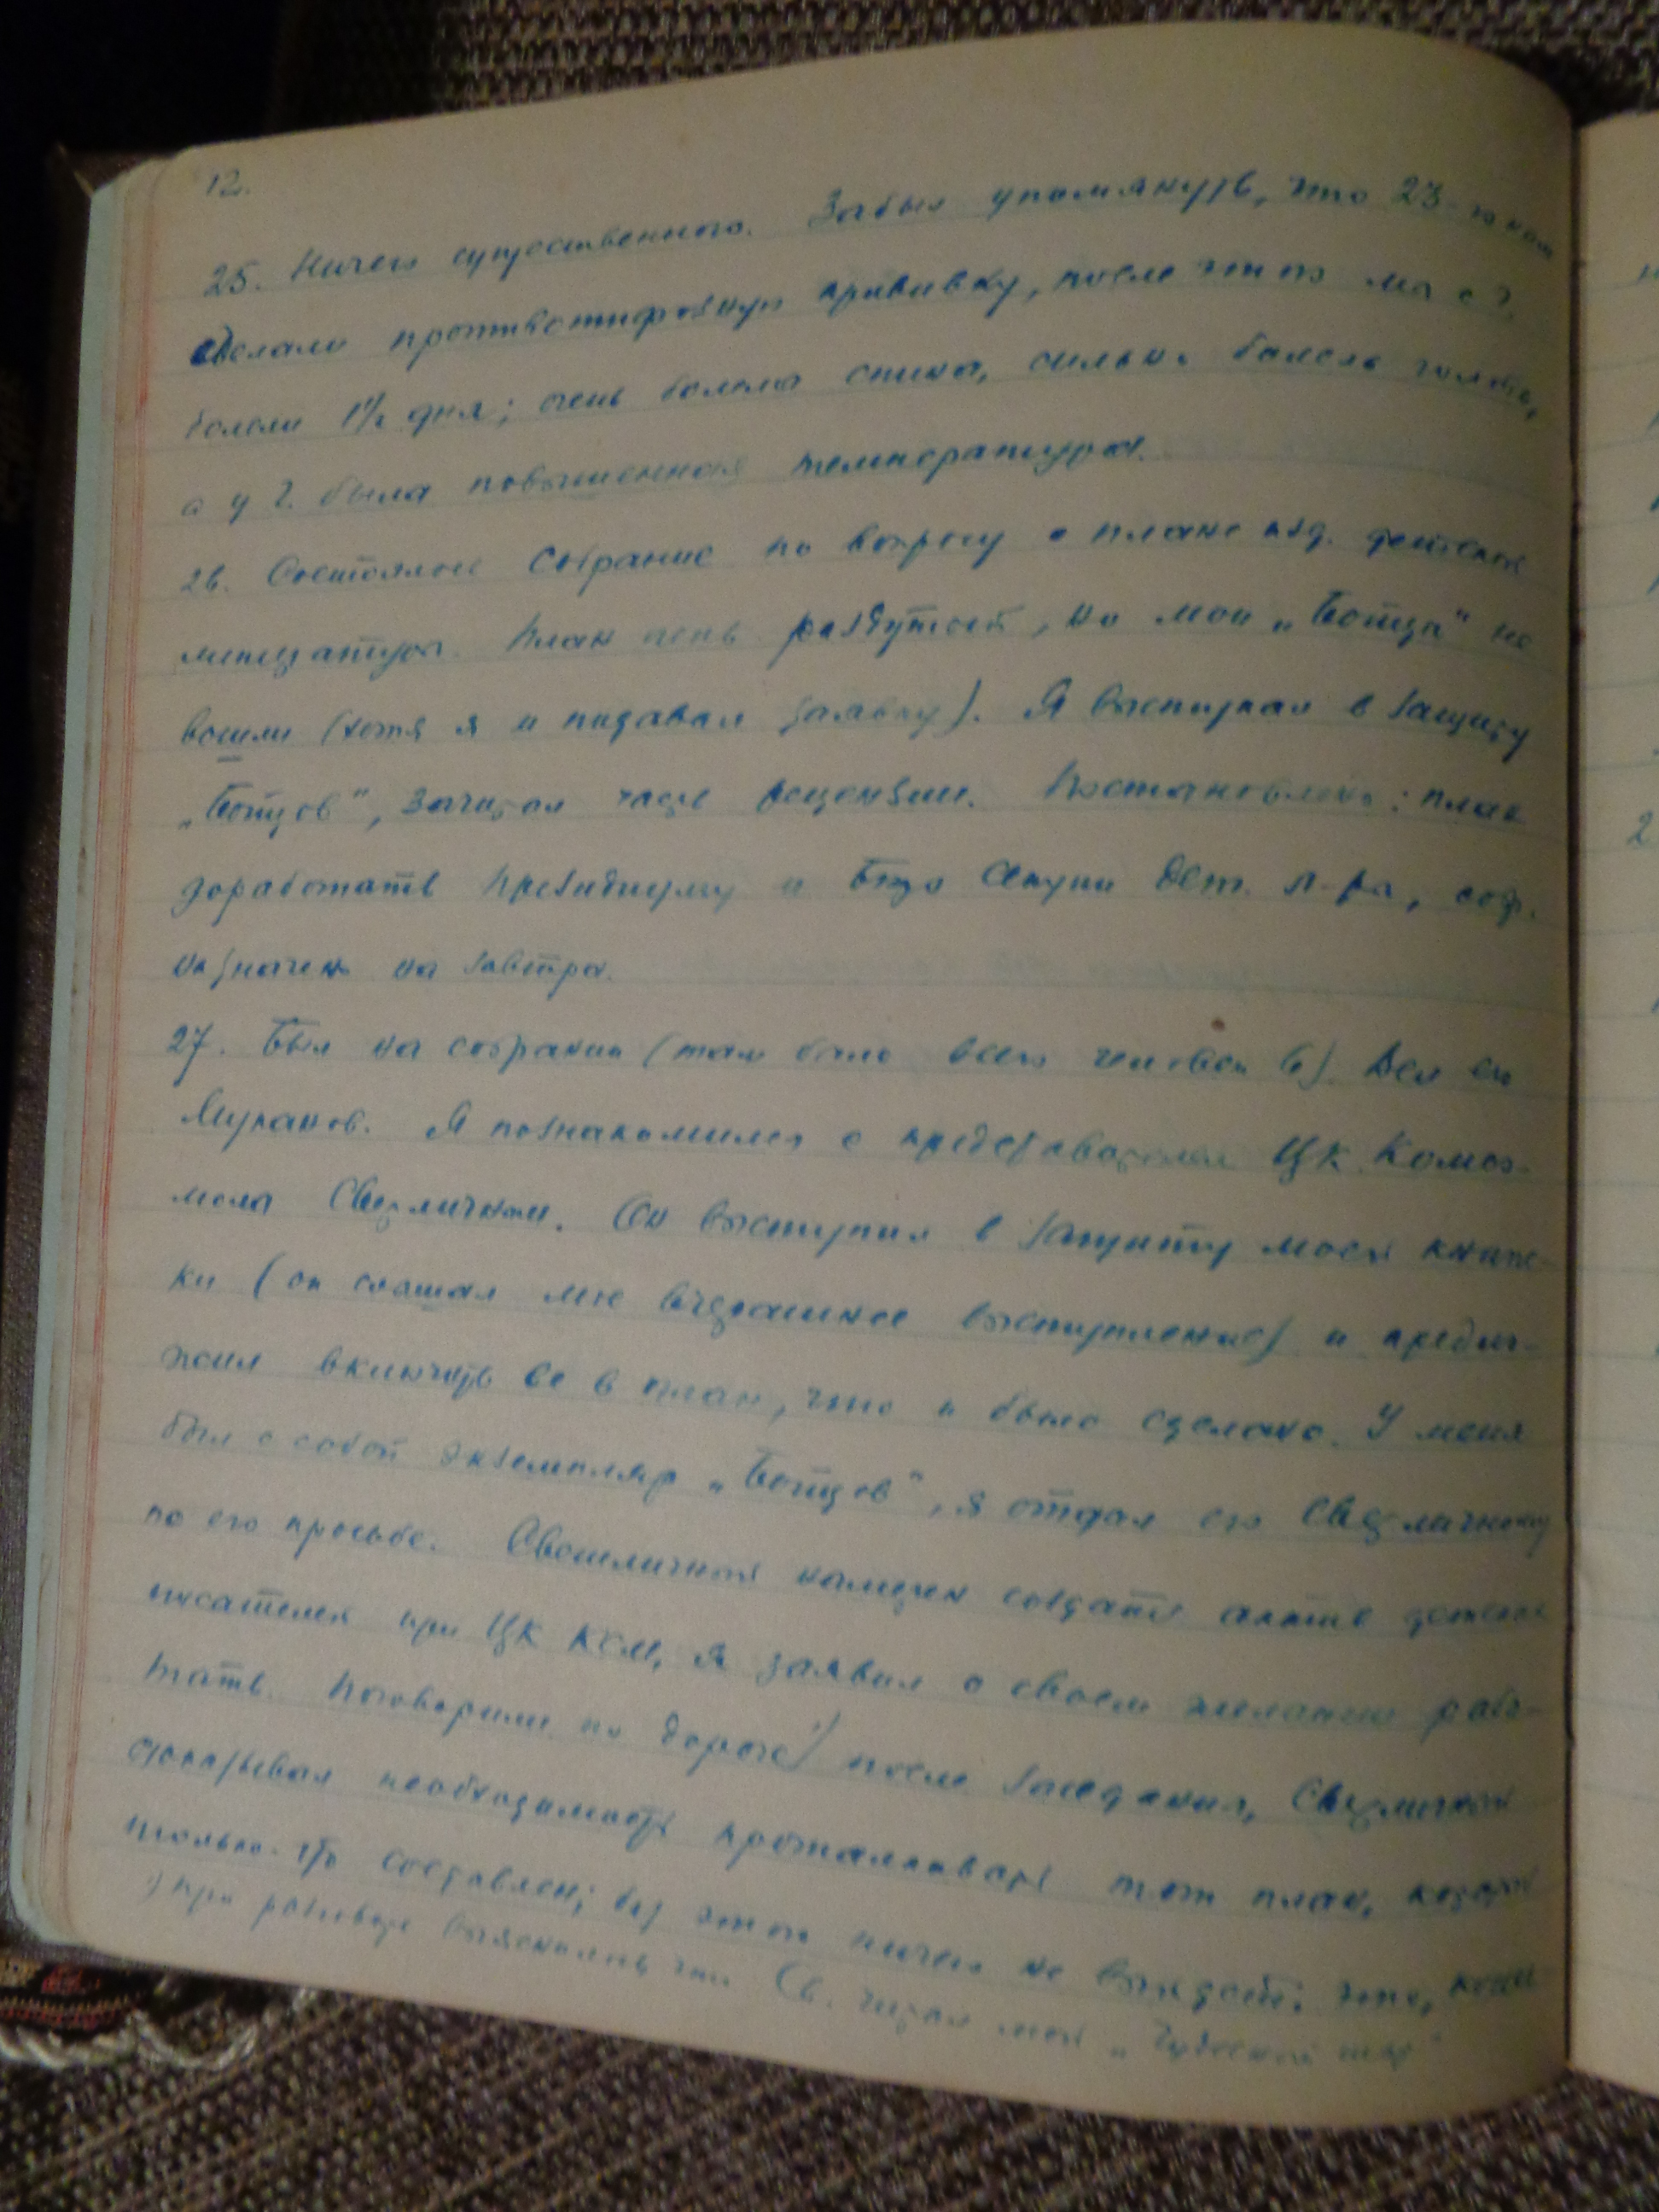 12.
25. Ничего существенного. Забыл упомянуть, что 23-го нам
сделали противотифозную прививку, после этого мы с Г.
болели 1½ дня; очень болела спина, сильно болела голова,
а у Г. была повышенная температура.
26. Состоялось собрание по вопросу о плане изд. детской
литературы. План очень раздутый, но мои „Бойцы" не
вошли (хотя я и подавал заявку). Я выступал в защиту
„Бойцов", зачитал часть рецензии. Постановлено: план
доработать Президиуму и Бюро Секции дет. л-ры,
назначен на завтра.
27. Был на собрании (там было всего человек 6). Вел его
Муканов. Я познакомился с представителем ЦК Комсо-
мола Светличным. Он выступил в защиту моей книж-
ки (он слышал мое вчерашнее выступление) и предло-
жил включить ее в план, что и было сделано. У меня
был с собой экземпляр „Бойцов", я отдал его Светличному
по его просьбе. Светличный намерен создать актив детских
писателей при ЦК КСМ, я заявил о своем желании рабо-
тать. Поговорили по дороге¹⁾ после заседания, Светличный
доказывал необходимость проталкивать тот план, который
только что составлен; без этого ничего не выйдет; это, конеч
¹⁾ при разговоре выяснилось, что Св. читал мой „Чудесный шар"